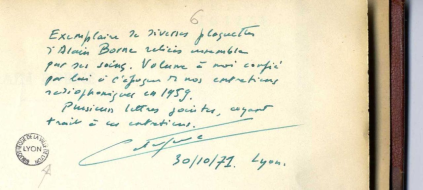 6
Exemplaire de diverses plaquettes
d'Alain Borne reliées ensemble
par ses soins. Volume à moi confié
par lui à l'époque de nos entretiens
radiophoniques en 1959.
Plusieurs lettres jointes, ayant
trait à ces entretiens.
30/10/71. Lyon.
BIBLIOTHEQUE DE LA VILLE
LYON